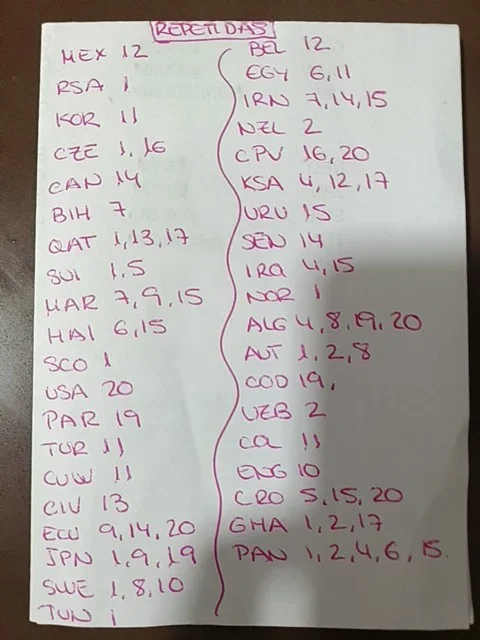 REPETIDAS
MEX 12
RSA 1
KOR 11
CZE 1,16
CAN 14
BIH 7
QAT 1,13,17
SUI 1,5
MAR 7,9,15
HAI 6,15
SCO 1
USA 20
PAR 19
TUR 11
CUW 11
CIV 13
ECU 9,14,20
JPN 1,9,19
SWE 1,8,10
TUN 1
BEL 12
EGY 6,11
IRN 7,14,15
NZL 2
CPV 16,20
KSA 4,12,17
URU 15
SEN 14
IRQ 4,15
NOR 1
ALG 4,8,19,20
AUT 1,2,8
COD 19,
UZB 2
COL 11
ENG 10
CRO 5,15,20
GHA 1,2,17
PAN 1,2,4,6,15.